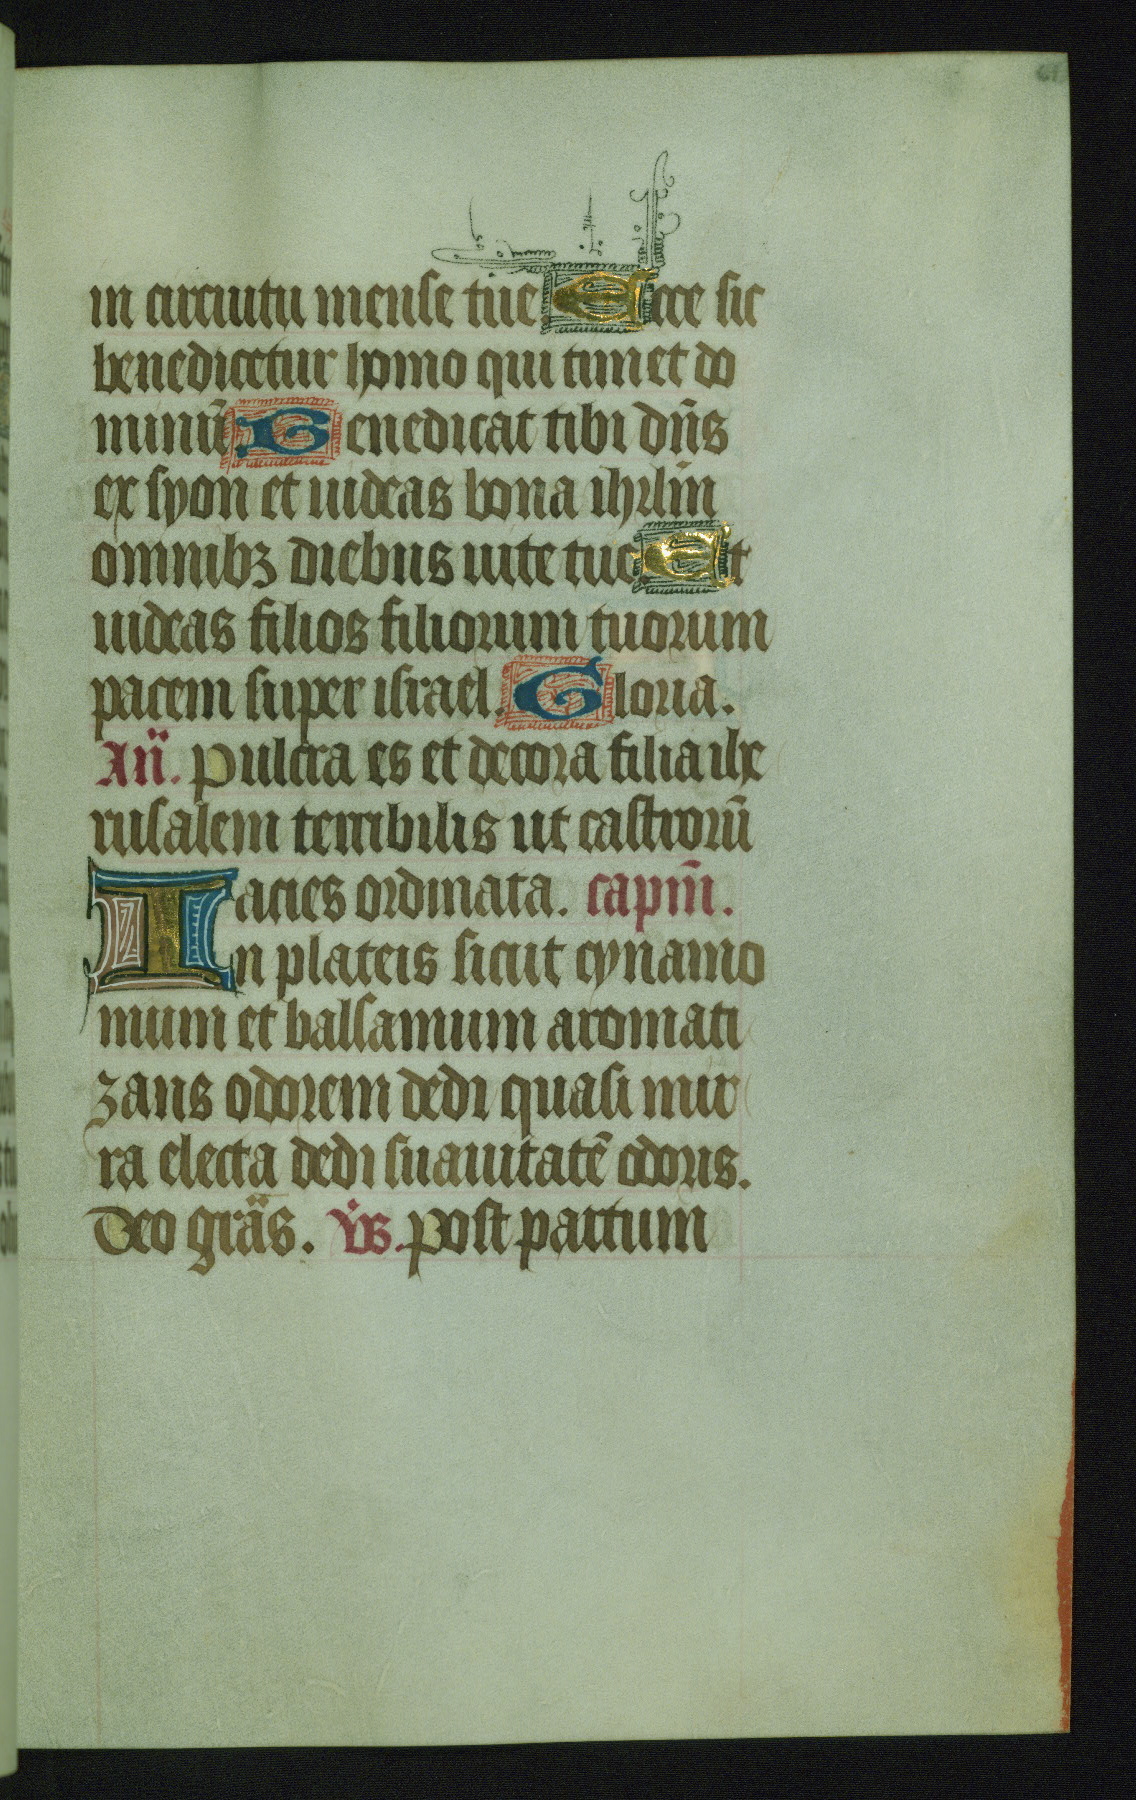 61
in circuitu mense tue. Ecce sic
benedicetur homo qui timet do
minū Benedicat tibi dñs
ex syon et uideas bona ihrlm̄
omnibꝫ diebus uite tue. Et
uideas filios filiorum tuorum
pacem super israel. Gloria.
Añ. Pulcra es et decora filia ihe
rusalem terribilis ut castrorū
acies ordinata. capm̄.
In plateis sicut cynamo
mum et balsamum aromati
zans odorem dedi quasi mir
ra electa dedi suauitatē odoris.
Deo grās. Vs. Post partum